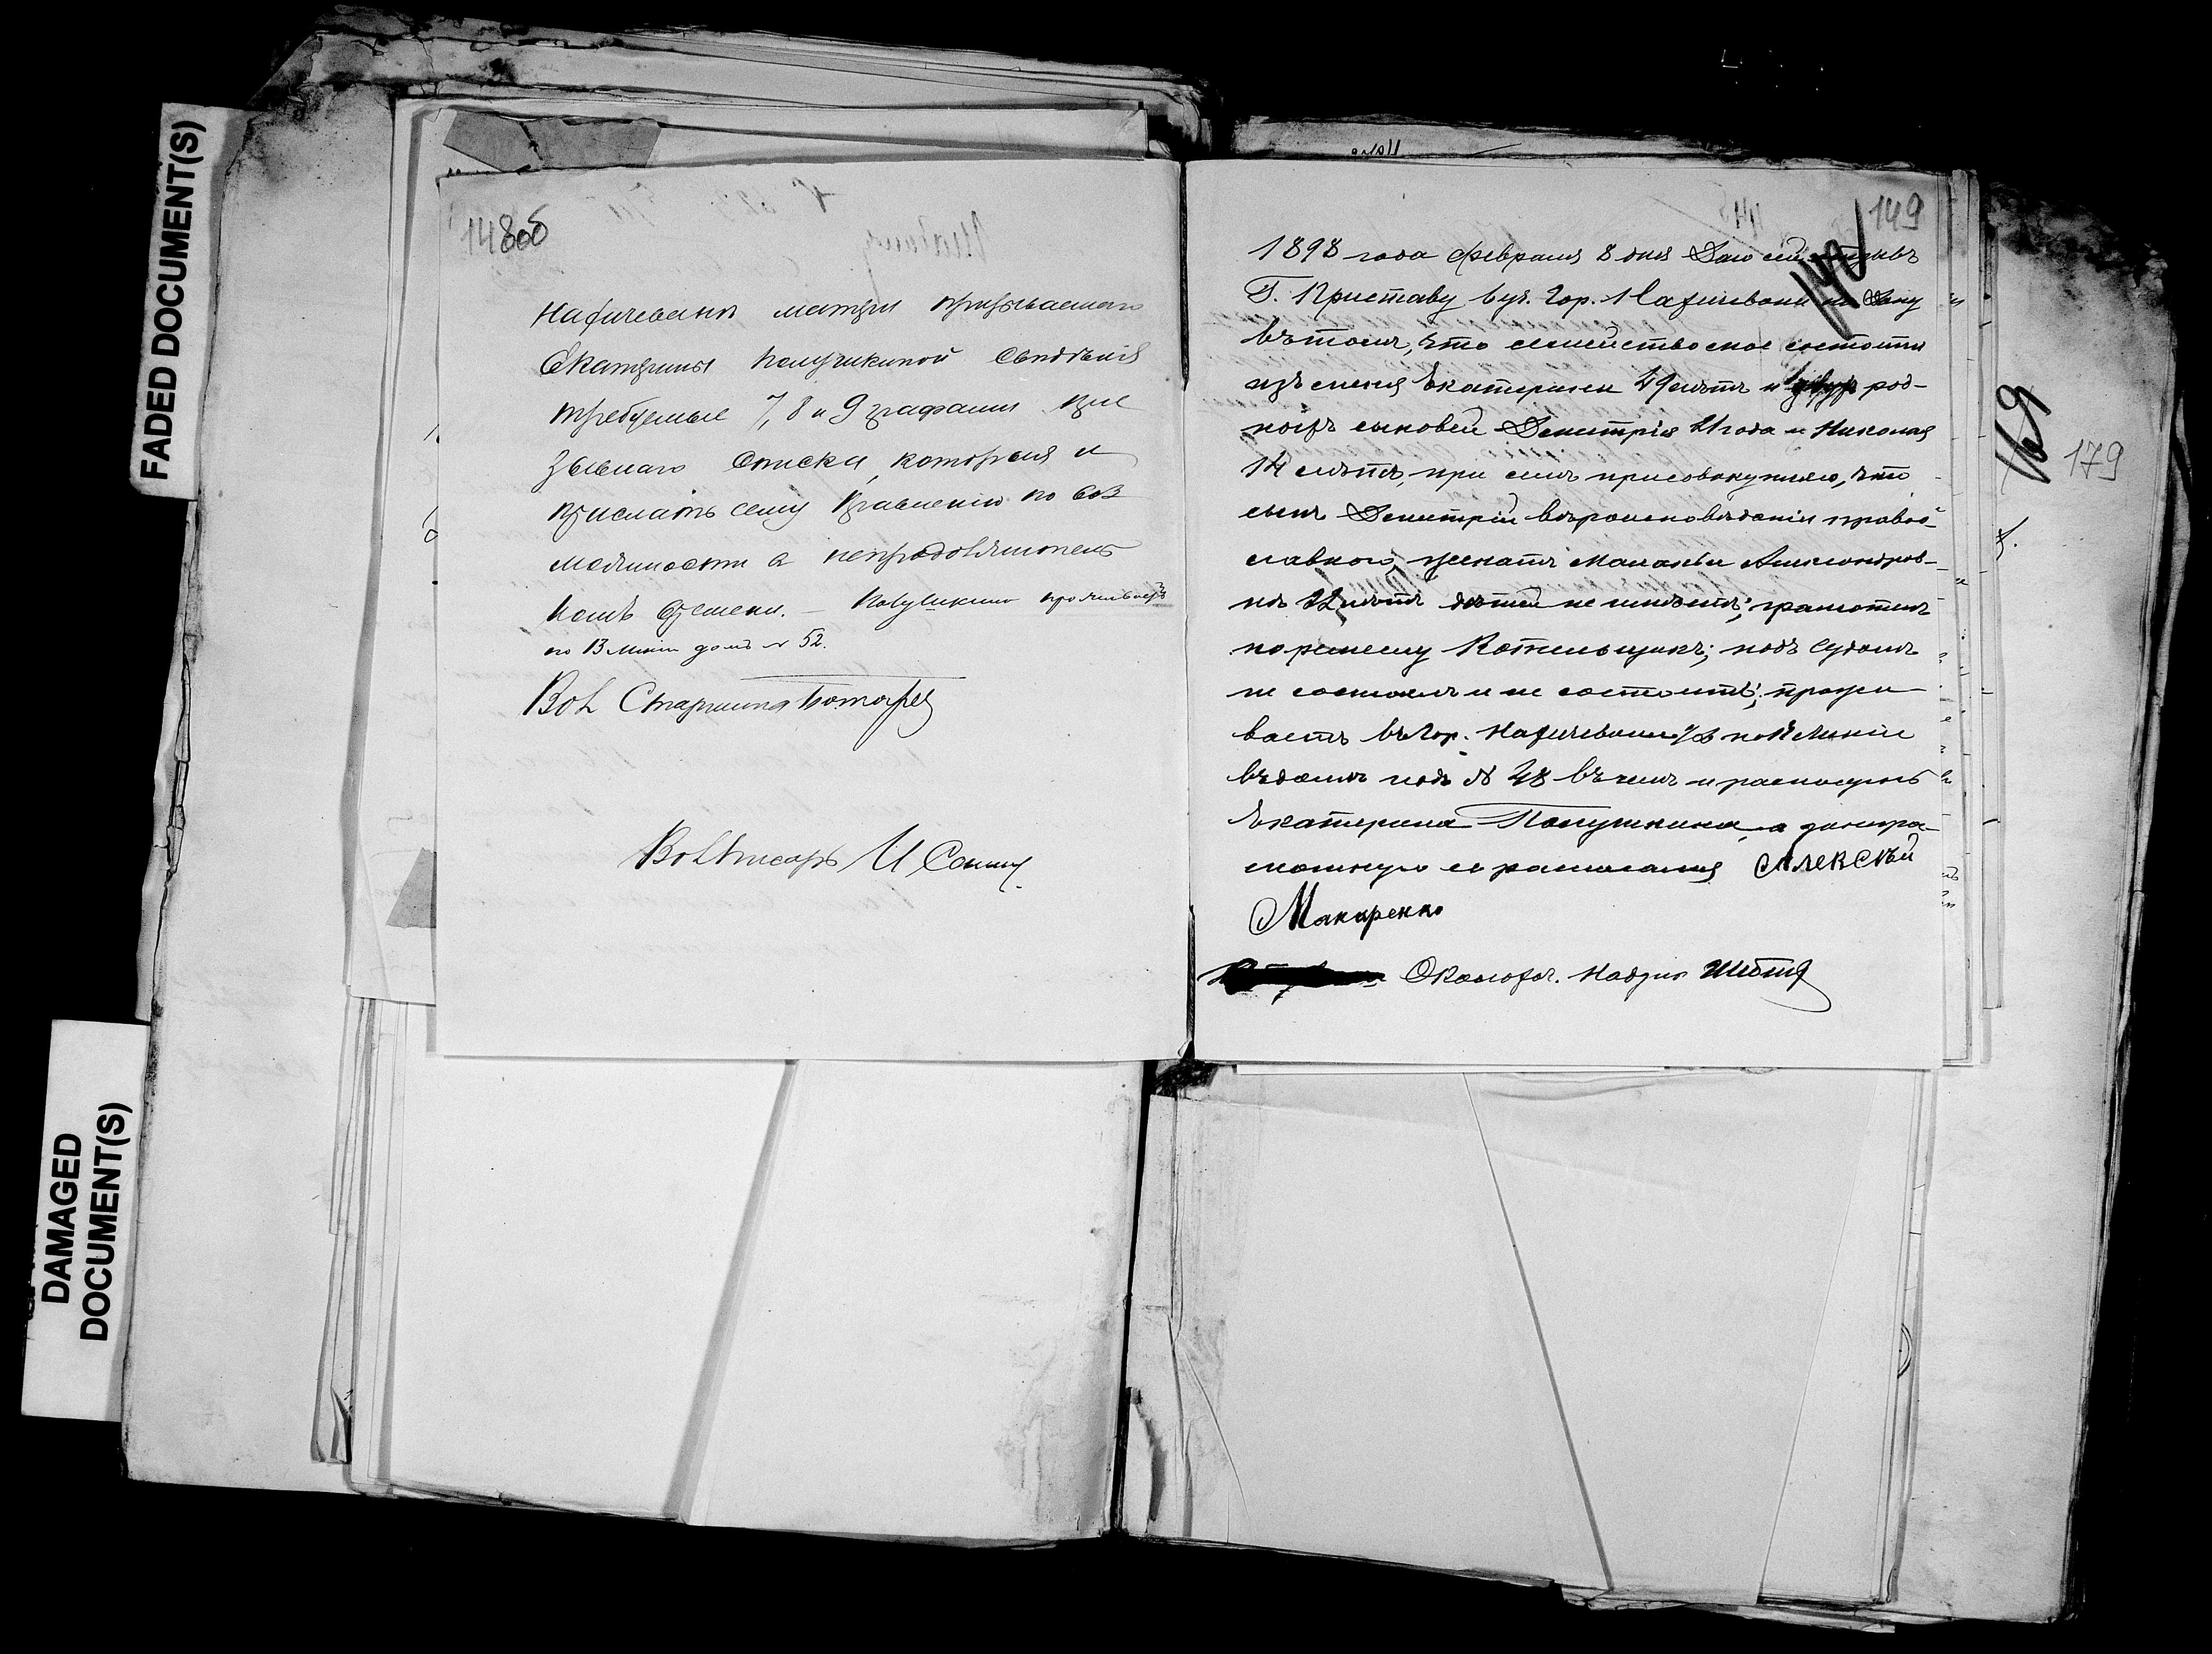 FADED DOCUMENT(S)
DAMAGED
DOCUMENT(S)
148об
Нахичевани матери призываемаго
Екатерины Полушкиной сведенія
требуемые 7, 8 и 9 графами при
зывнаго списка, которыя и
прислать сему Правленію по воз
можности в непродолжитель
номъ времени. — Полушкина проживаетъ
по 13 линіи домъ № 52.
Вол Старшина
Вол Писарь И
149
1898 года февраля 8 дня Даю сей отзывъ
Г. Приставу 1 уч. Гор. Нахичевани на Дону
въ томъ, что семейство мое состоитъ
изъ меня Екатерины 49 летъ и двухъ род-
ныхъ сыновей Дмитрія 21 года и Николая
14 летъ, при семъ присовокупляю, что
сынъ Дмитрій вероисповеданія право-
славнаго, женатъ Маланьи Александров-
не 22 летъ детей не имеетъ; грамотенъ
по ремеслу Котельщикъ; подъ судомъ
не состоялъ и не состоитъ; прожи-
ваетъ въ Гор. Нахичевани н/Д по линіи
въ доме подъ № 48 въ чемъ и расписуюсь
Екатерина Полушкина, а за негра-
мотную ея росписался Алексѣй
Макаренко
Околоточ. Надзир
169
179